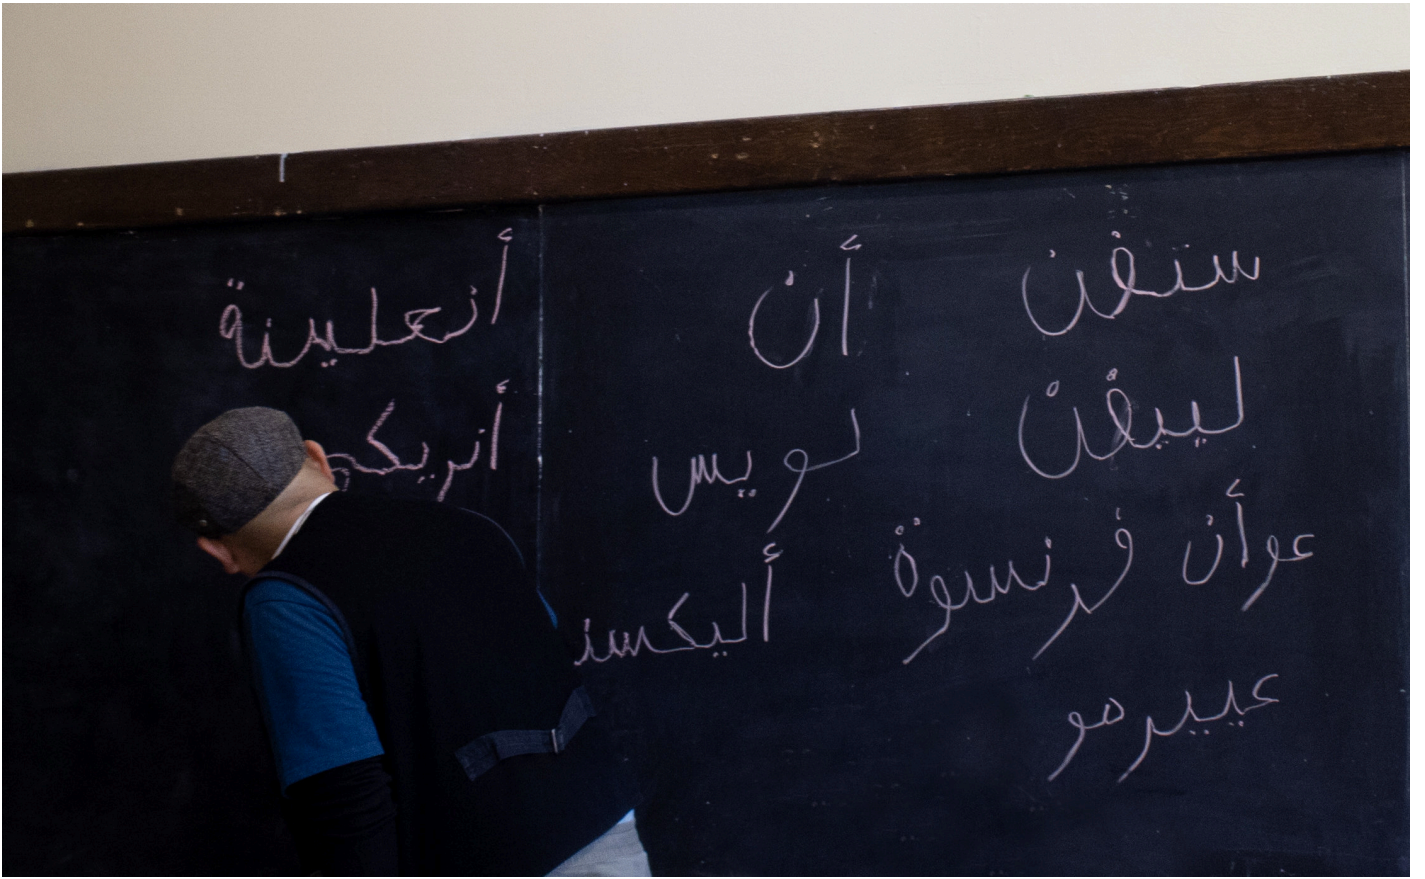 ستفن
ليفن
عوأن فرنسوة
عييرمو
أن
لويس
أليكسند
أنعلينة
أنريكو